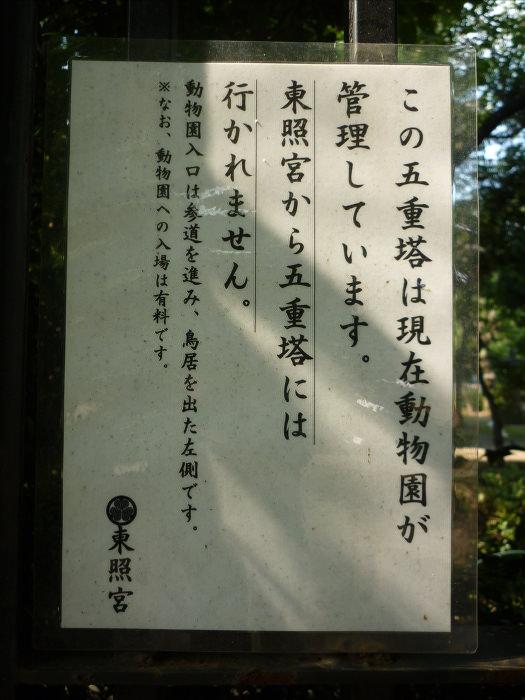 この五重塔は現在動物園が
管理しています。
東照宮から五重塔には
行かれません。
動物園入口は参道を進み、鳥居を出た左側です。
※なお、動物園への入場は有料です。
東照宮